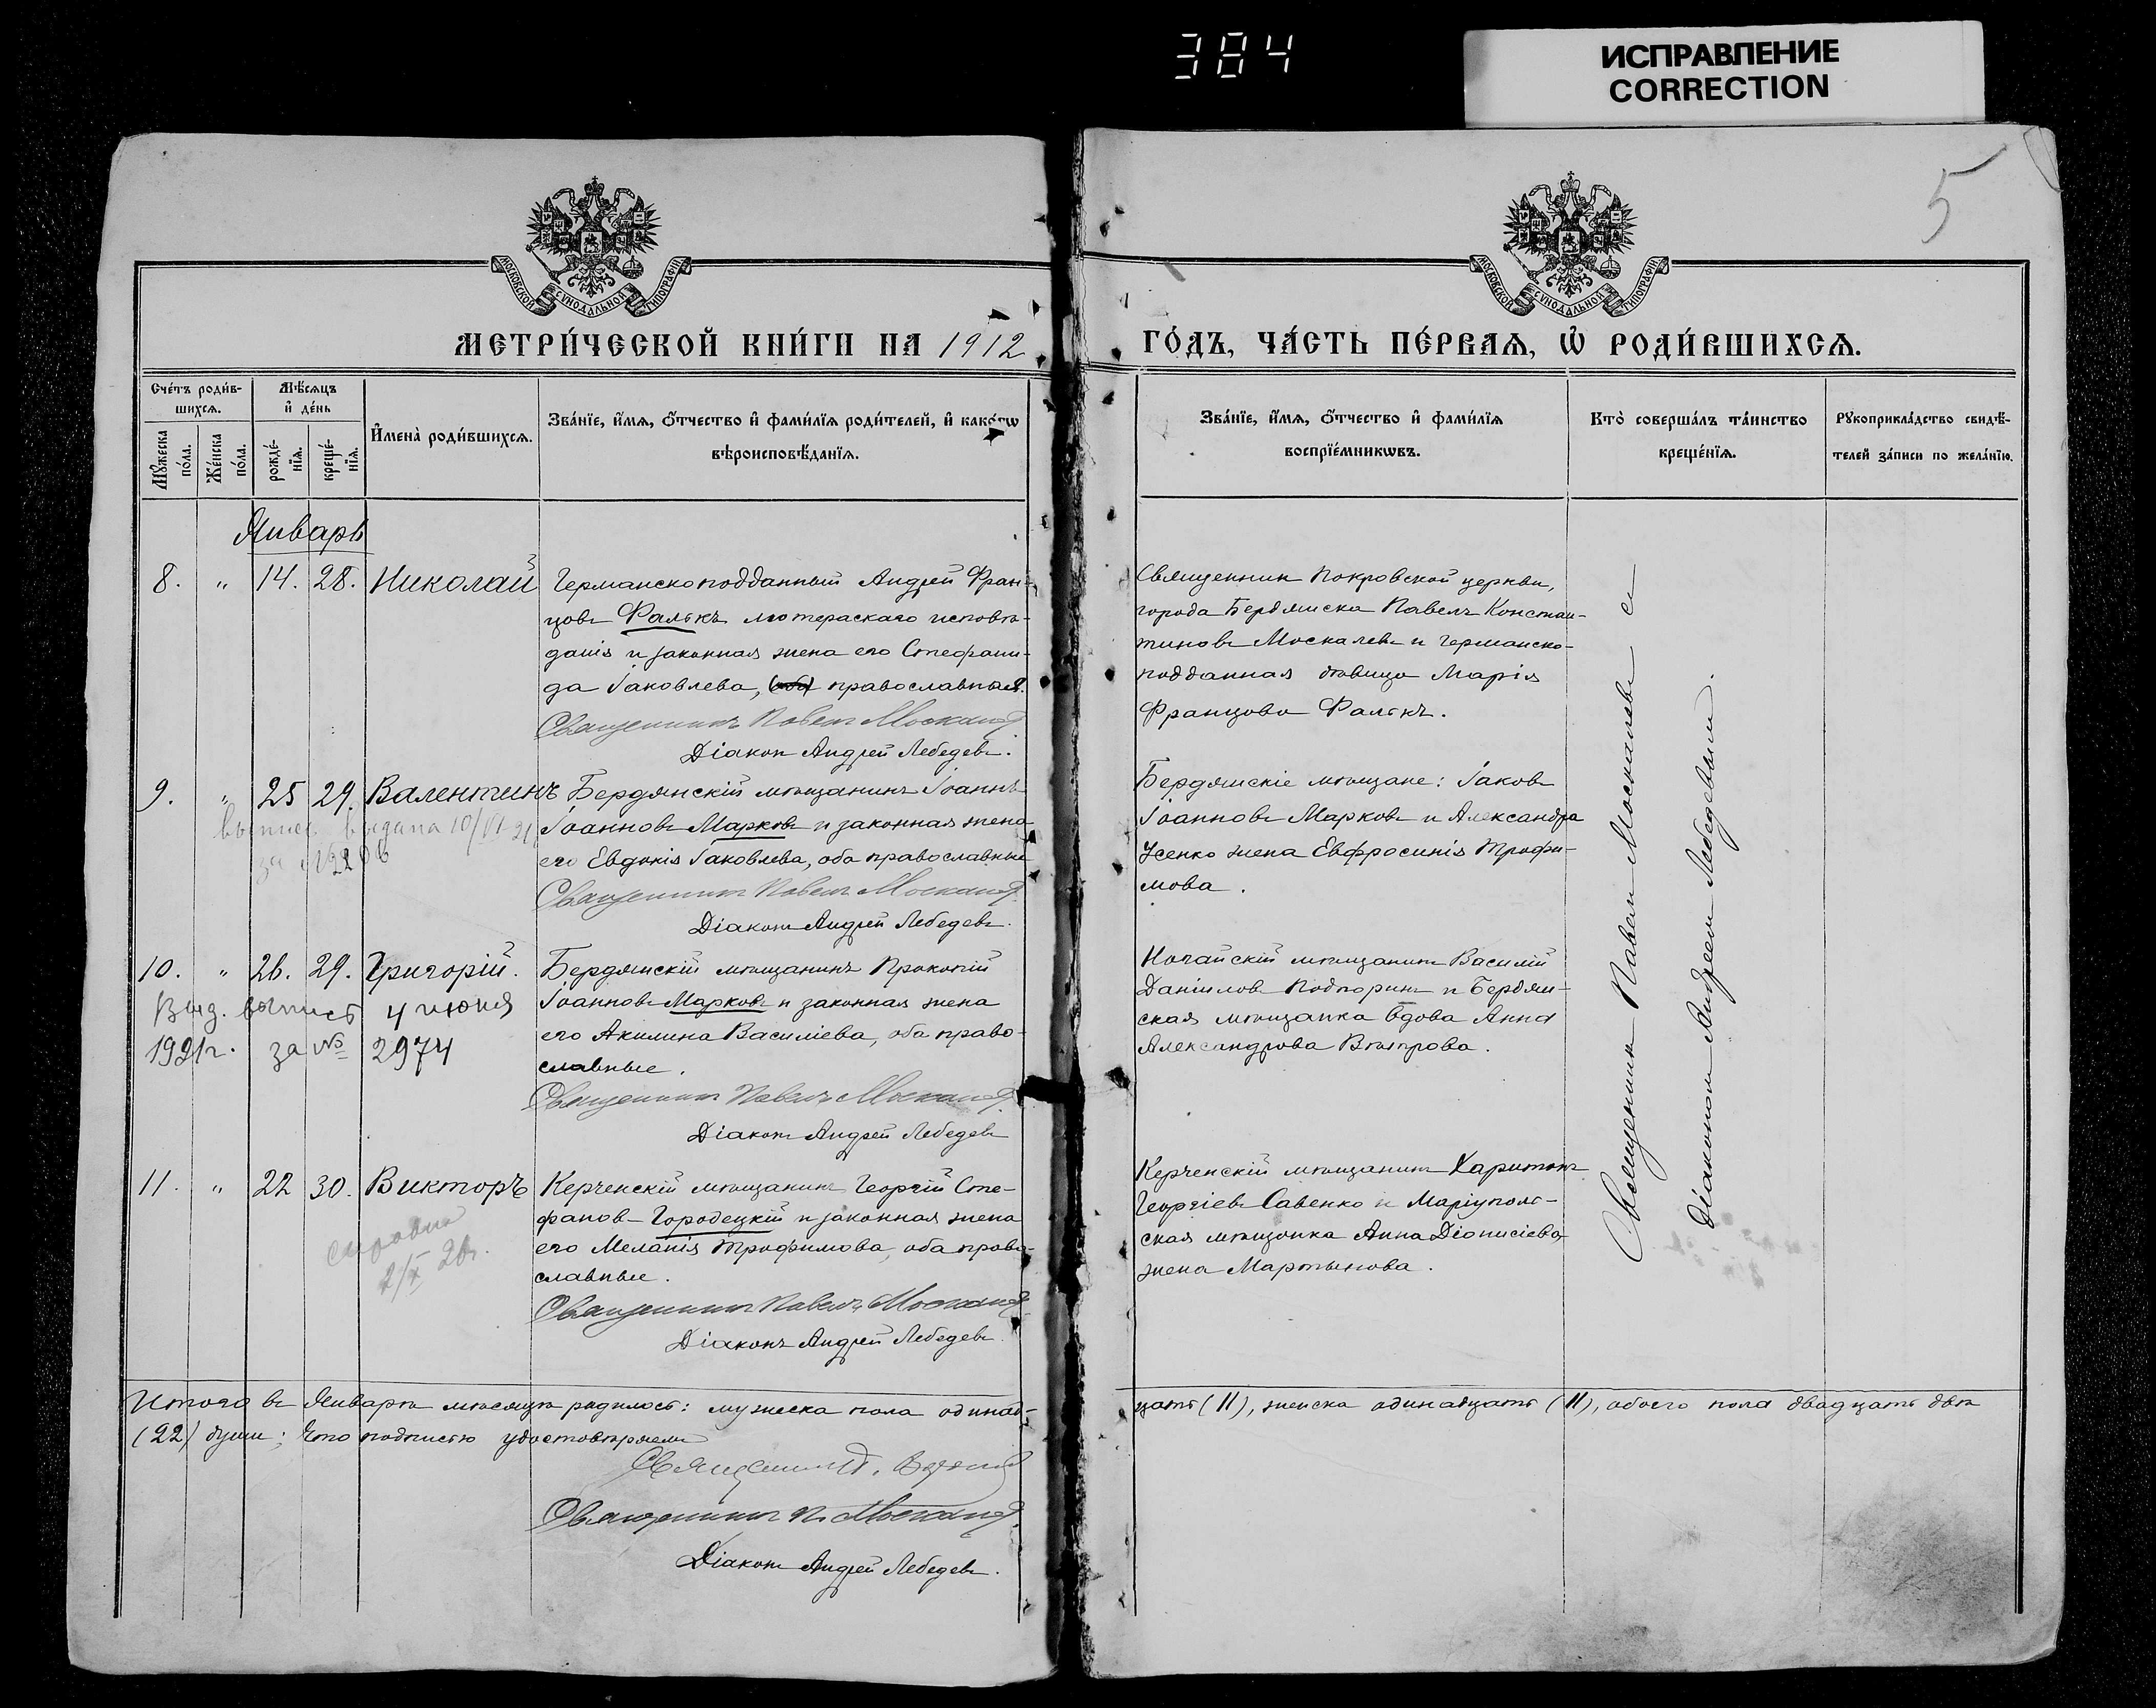 384
ИСПРАВЛЕНИЕ
CORRECTION
5
МОСКОВСКОЙ СУНОДАЛЬНОЙ ТИПОГРАФІИ
МОСКОВСКОЙ СУНОДАЛЬНОЙ ТИПОГРАФІИ
МЕТРИ́ЧЕСКОЙ КНИ́ГИ НА 1912
ГО́ДЪ, ЧА́СТЬ ПЕ́РВАЯ, Ѡ РОДИ́ВШИХСЯ.
Сче́тъ роди́в-
шихся.
Мꙋ́жеска по́ла.
Же́нска по́ла.
Мѣ́сяцъ
и де́нь
рожде́-
нїя.
креще́-
нїя.
И҆мена̀ роди́вшихся.
Зва́нїе, и҆́мя, ѻ҆́тчество и҆ фами́лїя роди́телей, и҆ како́гѡ
вѣроисповѣ́данїя.
Зва́нїе, и҆́мя, ѻ҆́тчество и҆ фами́лїя
воспрїе́мникѡвъ.
Кто̀ соверша́лъ та́инство
креще́нїя.
Рꙋкоприкла́дство свидѣ́-
телей за́писи по жела́нїю.
Январь
8. " 14. 28. Николай
Германскоподданный Андрей Фран-
цовъ Фалькъ лютераскаго исповѣ-
данія и законная жена его Стефани-
да Іаковлева, (оба) православная.
Священникъ Павелъ Москалевъ
Діаконъ Андрей Лебедевъ.
Священникъ Покровской церкви,
города Бердянска Павелъ Констан-
тиновъ Москалевъ и германско-
подданная дѣвица Марія
Францова Фалькъ.
9. " 25 29. Валентинъ
выпись выдана 10/VI 21
за № 2206
Бердянскій мѣщанинъ Іоаннъ
Іоанновъ Марковъ и законная жена
его Евдокія Іаковлева, оба православные
Священникъ Павелъ Москалевъ
Діаконъ Андрей Лебедевъ.
Бердянскіе мѣщане: Іаковъ
Іоанновъ Марковъ и Александра
Усенко жена Евфросинія Трофи-
мова.
10. " 26. 29. Григорій.
Выд. выпись 4 июня
1921г. за № 2974
Бердянскій мѣщанинъ Прокопій
Іоанновъ Марковъ и законная жена
его Акилина Василіева, оба право-
славные.
Священникъ Павелъ Москалевъ
Діаконъ Андрей Лебедевъ
Ногайскій мѣщанинъ Василій
Даніиловъ Подпоринъ и Бердян-
ская мѣщанка вдова Анна
Александрова Вѣтрова.
11. " 22 30. Викторъ
справка
2/X 26г.
Керченскій мѣщанинъ Георгій Сте-
фановъ Городецкій и законная жена
его Меланія Трофимова, оба право-
славные.
Священникъ Павелъ Москалевъ
Діаконъ Андрей Лебедевъ.
Керченскій мѣщанинъ Харитонъ
Георгіевъ Савенко и Маріуполь-
ская мѣщанка Анна Діонисіева
жена Мартынова.
Священникъ Павелъ Москалевъ съ
Діакономъ Андреемъ Лебедевымъ.
Итого въ Январѣ мѣсяцѣ родилось: мужеска пола одинад-
цать (11), женска одинадцать (11), обоего пола двадцать двѣ
(22) души; Что подписью удостовѣряемъ
Священникъ
Священникъ П. Москалевъ
Діаконъ Андрей Лебедевъ.